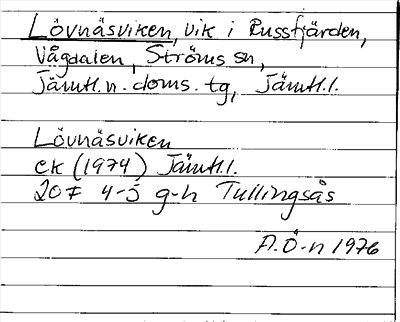 Lövnäsviken, vik i Russfjärden,
Vågdalen, Ströms sn,
Jämtl.n. doms. tg, Jämtl.l.
Lövnäsviken
ek (1974) Jämtl.l.
20F 4-5 g-h Tullingsås
A.Ö-n 1976